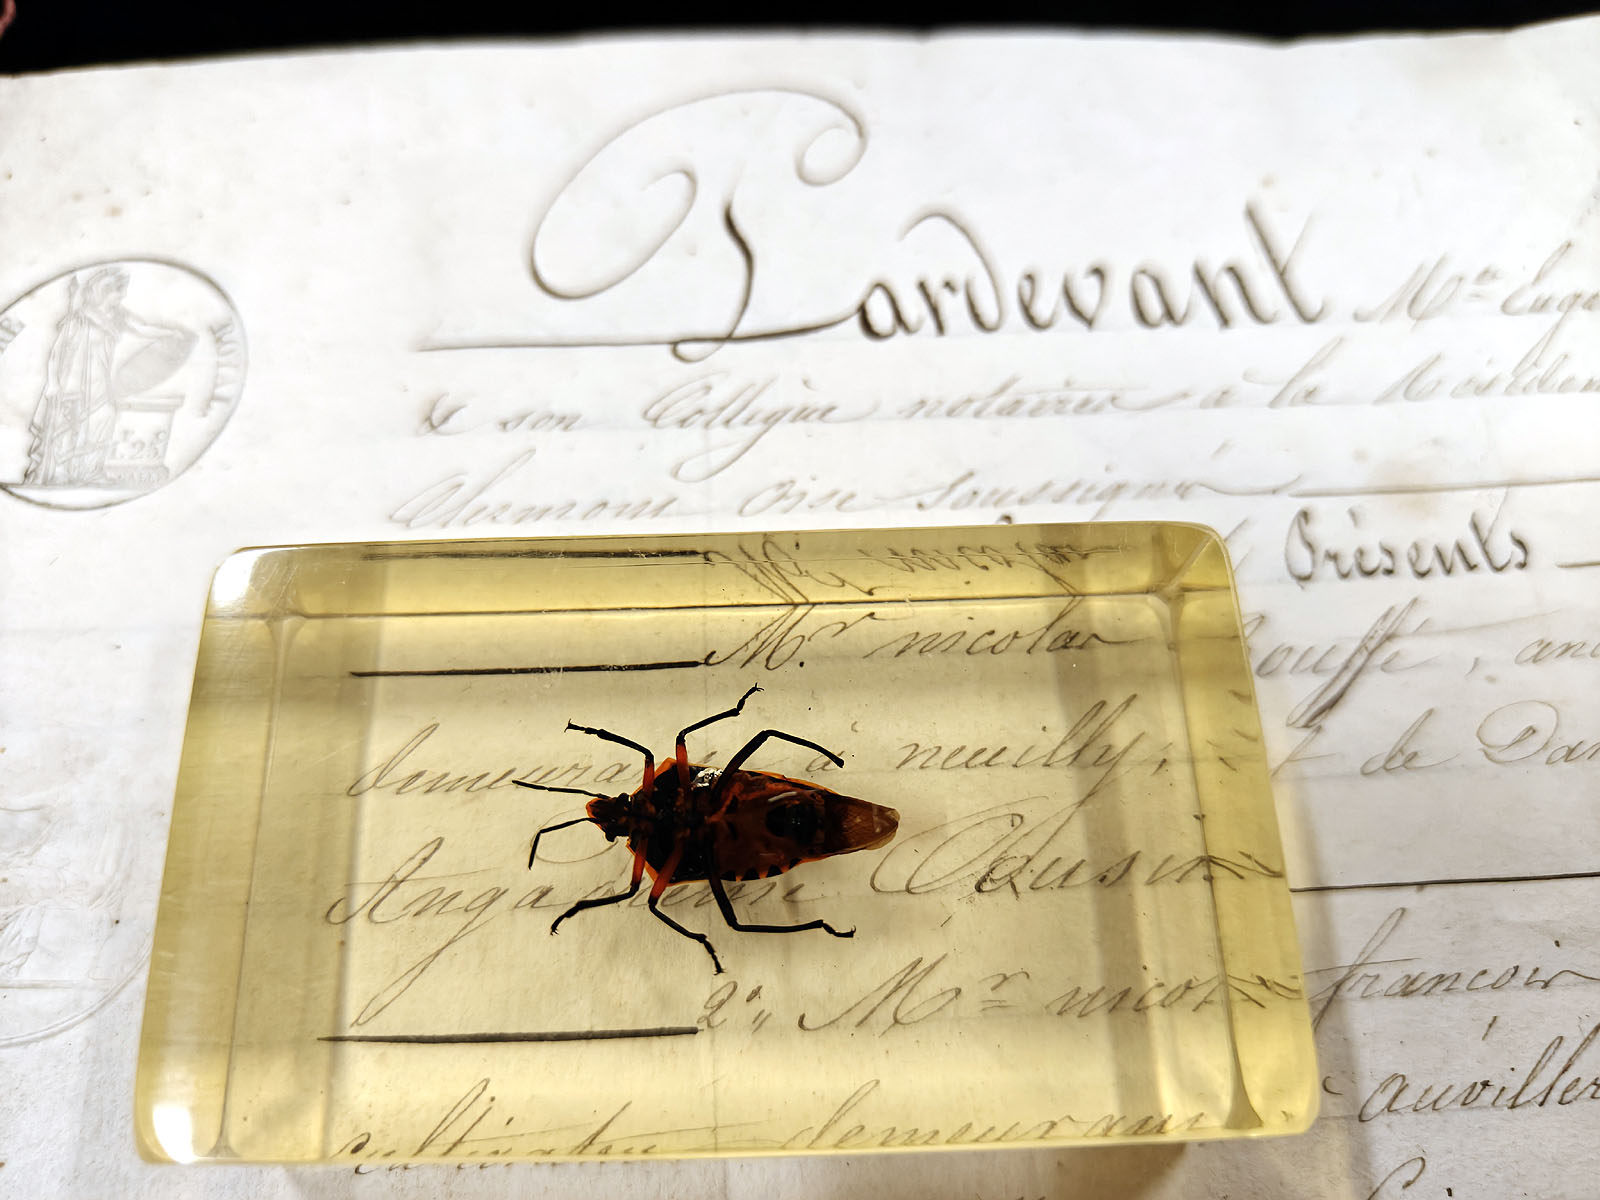 Pardevant Me Eugè
& son Collègue notaires à la Résiden
Clermont oise soussignés
Présents
Mr nicolas Bouffé, anc
demeurant à neuilly, et de Dam
Angadreme Cousin
2° Mr nicolas francois
auviller
cultivateur demeurant
ROYAL